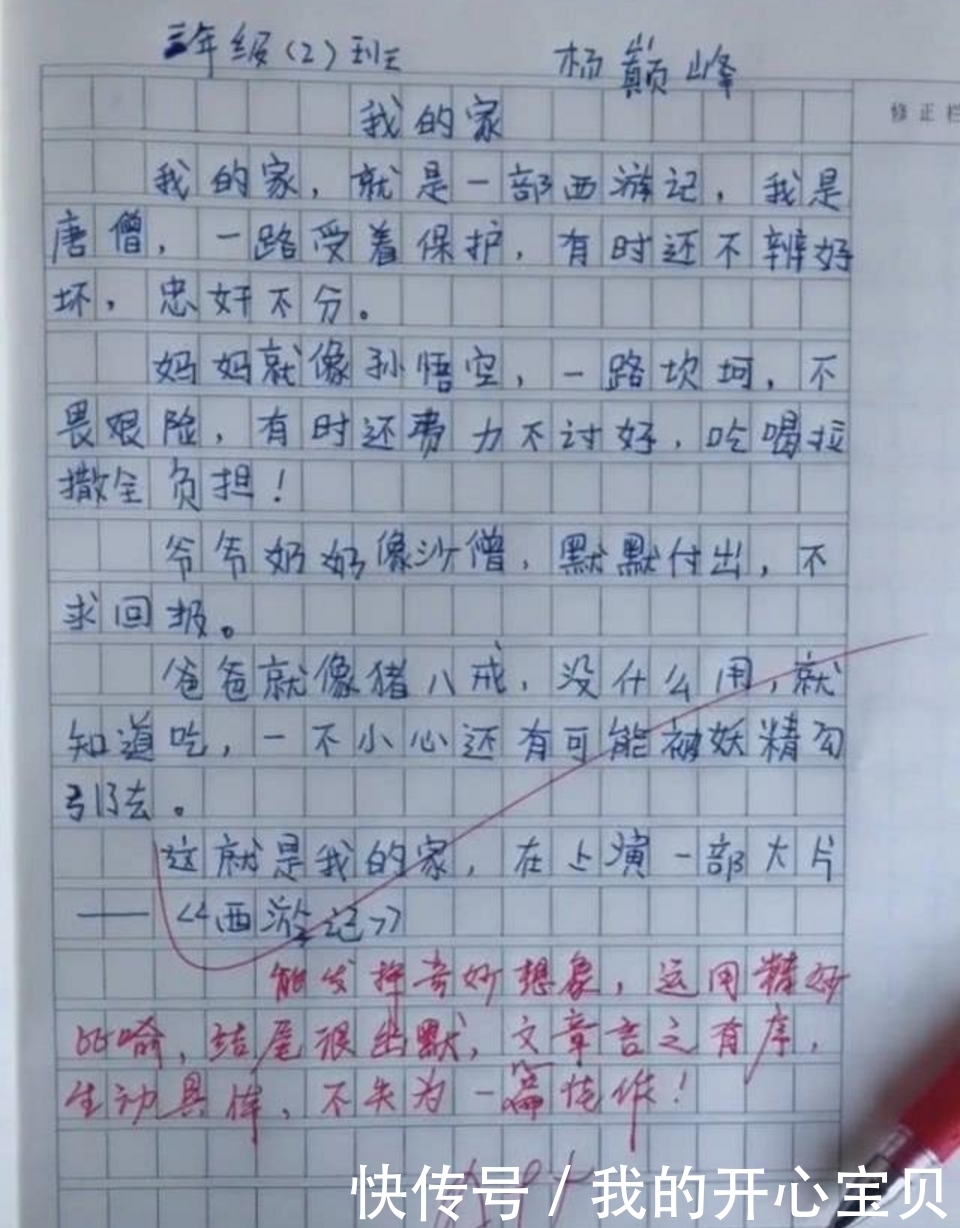 三年级(2)班 杨巅峰
修正栏
我的家
我的家,就是一部西游记,我是
唐僧,一路受着保护,有时还不辨好
坏,忠奸不分。
妈妈就像孙悟空,一路坎坷,不
畏艰险,有时还费力不讨好,吃喝拉
撒全负担!
爷爷奶奶像沙僧,默默付出,不
求回报。
爸爸就像猪八戒,没什么用,就
知道吃,一不小心还有可能被妖精勾
引了去。
这就是我的家,在上演一部大片
——《西游记》
能发挥奇妙想象,运用精妙
比喻,结尾很幽默,文章言之有序,
生动具体,不失为一篇佳作!
快传号/我的开心宝贝